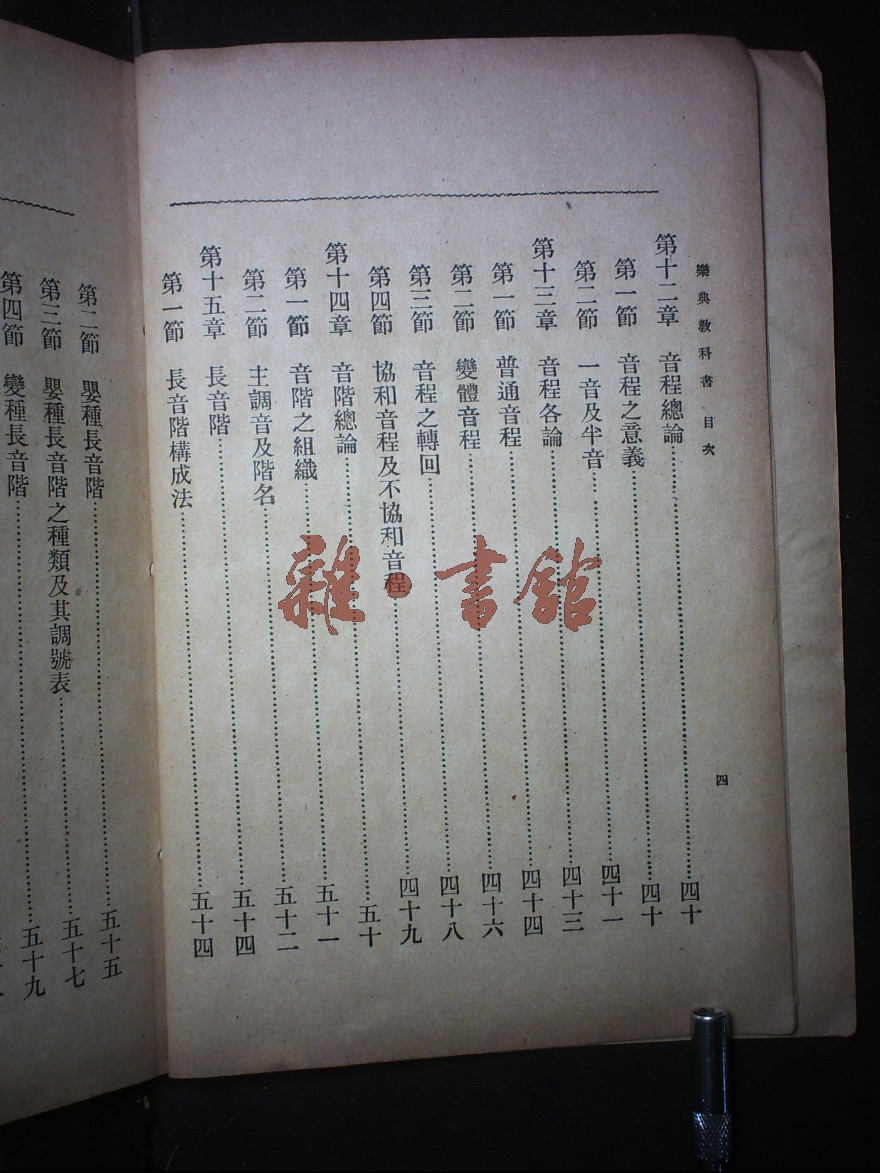 樂典教科書 目次 四
第十二章 音程總論……四十
第一節 音程之意義……四十
第二節 一音及半音……四十一
第十三章 音程各論……四十三
第一節 普通音程……四十四
第二節 變體音程……四十六
第三節 音程之轉回……四十八
第四節 協和音程及不協和音程……四十九
第十四章 音階總論……五十
第一節 音階之組織……五十一
第二節 主調音及階名……五十二
第十五章 長音階……五十四
第一節 長音階構成法……五十四
第二節 嬰種長音階……五十五
第三節 嬰種長音階之種類及其調號表……五十七
第四節 變種長音階……五十九
雜·書館